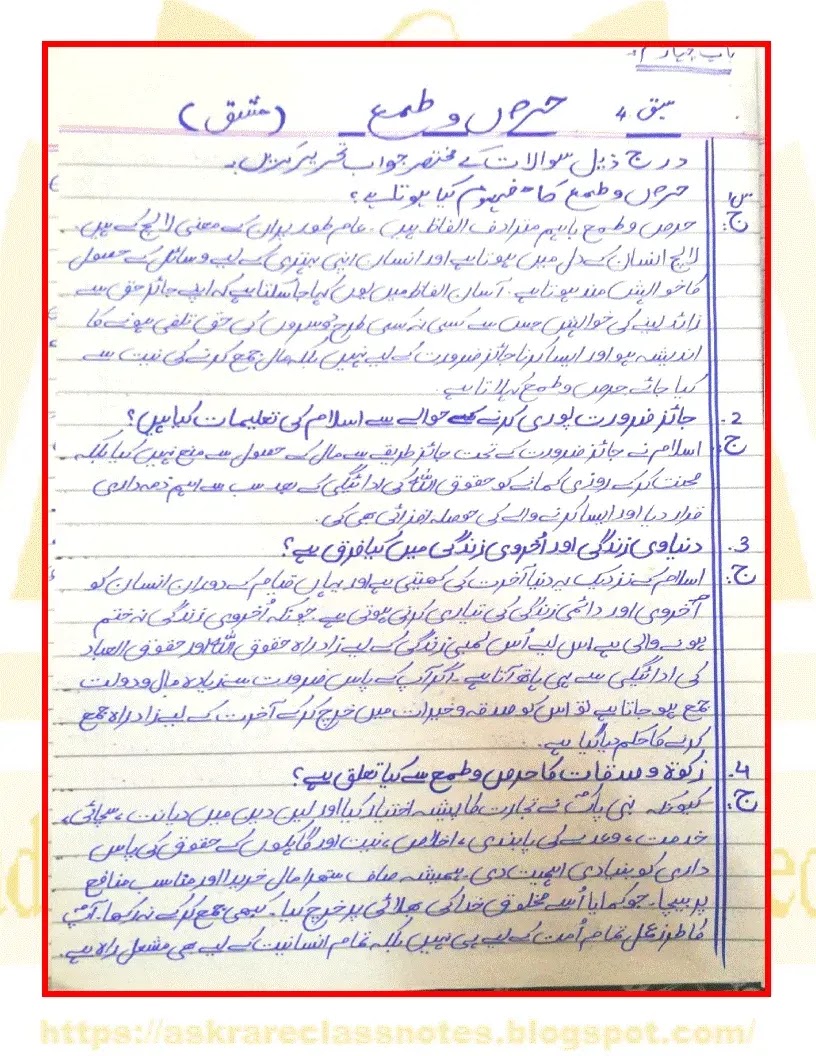 باب چہارم:
سبق 4 حرص و طمع (مشق)
درج ذیل سوالات کے مختصر جواب تحریر کریں۔
س1 حرص و طمع کا مفہوم کیا ہوتا ہے؟
ج: حرص و طمع باہم مترادف الفاظ ہیں۔ عام طور پر ان کے معنی لالچ کے ہیں۔
لالچ انسان کے دل میں ہوتا ہے اور انسان اپنی بہتری کے لیے وسائل کے حصول
کا خواہش مند ہوتا ہے۔ آسان الفاظ میں یوں کہا جا سکتا ہے کہ اپنے جائز حق سے
زائد لینے کی خواہش جس سے کسی نہ کسی طرح دوسروں کی حق تلفی ہونے کا
اندیشہ ہو اور ایسا کرنا جائز ضرورت کے لیے نہیں بلکہ مال جمع کرنے کی نیت سے
کیا جائے حرص و طمع کہلاتا ہے۔
2. جائز ضرورت پوری کرنے کے حوالے سے اسلام کی تعلیمات کیا ہیں؟
ج: اسلام نے جائز ضرورت کے تحت جائز طریقے سے مال کے حصول سے منع نہیں کیا بلکہ
محنت کرکے روزی کمانے کو حقوق اللہ کی ادائیگی کے بعد سب سے اہم ذمہ داری
قرار دیا اور ایسا کرنے والے کی حوصلہ افزائی بھی کی۔
3. دنیاوی زندگی اور اُخروی زندگی میں کیا فرق ہے؟
ج: اسلام کے نزدیک یہ دنیا آخرت کی کھیتی ہے اور یہاں قیام کے دوران انسان کو
اُخروی اور دائمی زندگی کی تیاری کرنی ہوتی ہے۔ چونکہ اُخروی زندگی نہ ختم
ہونے والی ہے اس لیے اُس لمبی زندگی کے لیے زاد راہ حقوق اللہ اور حقوق العباد
کی ادائیگی سے ہی ہاتھ آتا ہے۔ اگر آپ کے پاس ضرورت سے زیادہ مال و دولت
جمع ہو جاتا ہے تو اس کو صدقہ و خیرات میں خرچ کرکے آخرت کے لیے زاد راہ جمع
کرنے کا حکم دیا گیا ہے۔
4. زکوٰۃ و صدقات کا حرص و طمع سے کیا تعلق ہے؟
ج: کیونکہ نبی پاکؐ نے تجارت کا پیشہ اختیار کیا اور لین دین میں دیانت، سچائی،
خدمت، وعدے کی پابندی، اخلاص، نیت اور گاہکوں کے حقوق کی پاس
داری کو بنیادی اہمیت دی۔ ہمیشہ صاف ستھرا مال خریدا اور مناسب منافع
پر بیچا۔ جو کمایا اُسے مخلوق خدا کی بھلائی پر خرچ کیا۔ کبھی جمع کرکے نہ رکھا۔ آپؐ
کا طرز عمل تمام اُمت کے لیے ہی نہیں بلکہ تمام انسانیت کے لیے بھی مشعل راہ ہے۔
https://askrareclassnotes.blogspot.com/